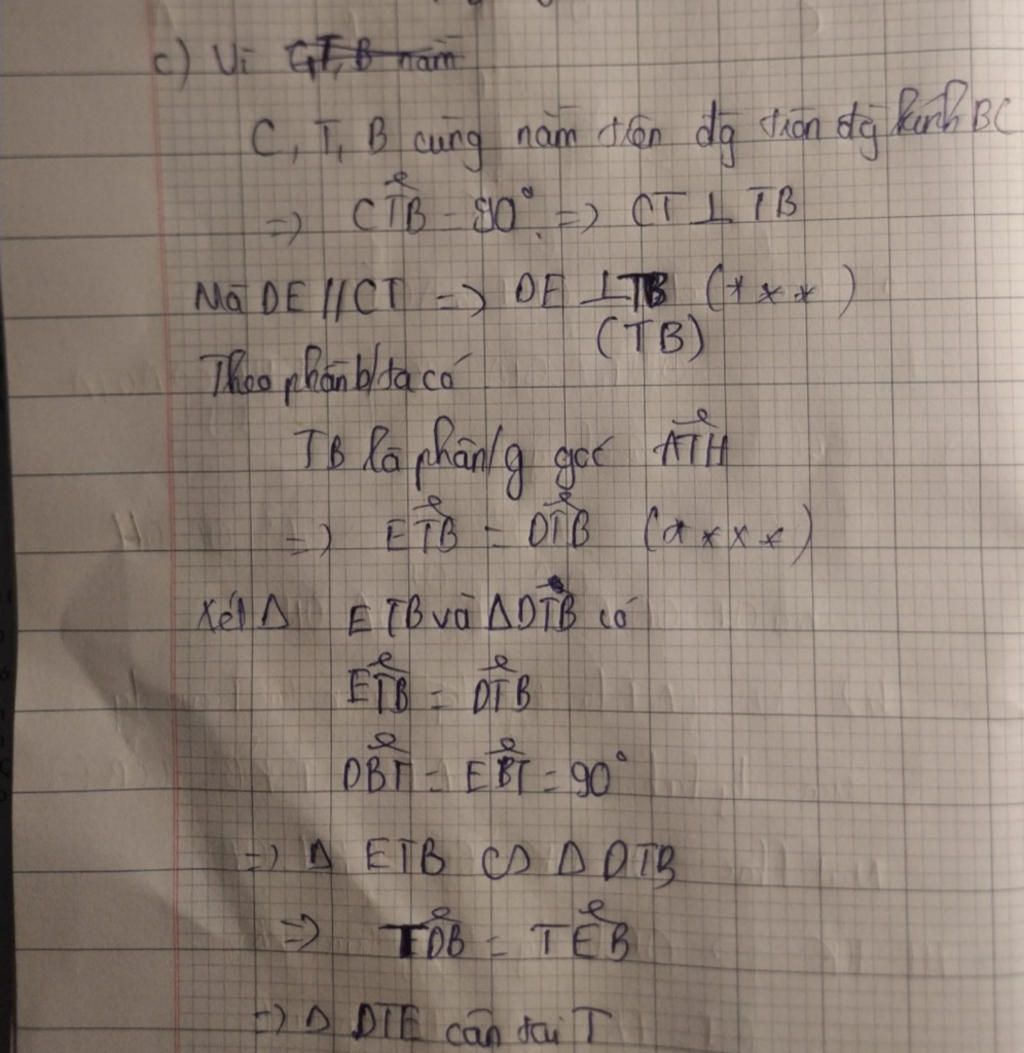 c) Vì C,T,B nằm
C, T, B cùng nằm trên đg tròn đg kính BC
=> CTB = 90° => CT ⊥ TB
Mà DE // CT => DE ⊥ TB (***)
(TB)
Theo phần b/ ta có
TB là phân/g góc ATH
=> ETB = DTB (****)
Xét Δ ETB và ΔDTB có
ETB = DTB
DBT = EBT = 90°
=> Δ ETB ∽ Δ DTB
=> TDB = TEB
=> Δ DTE cân tại T